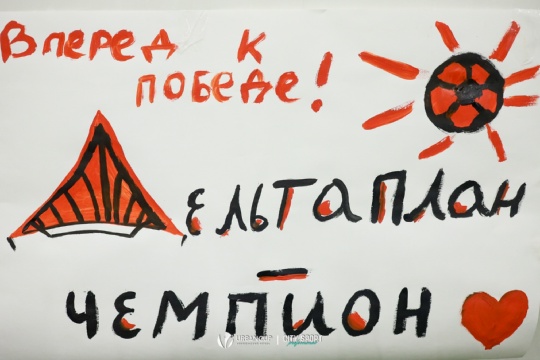 Вперед к
победе!
Дельтаплан
—
чемпион